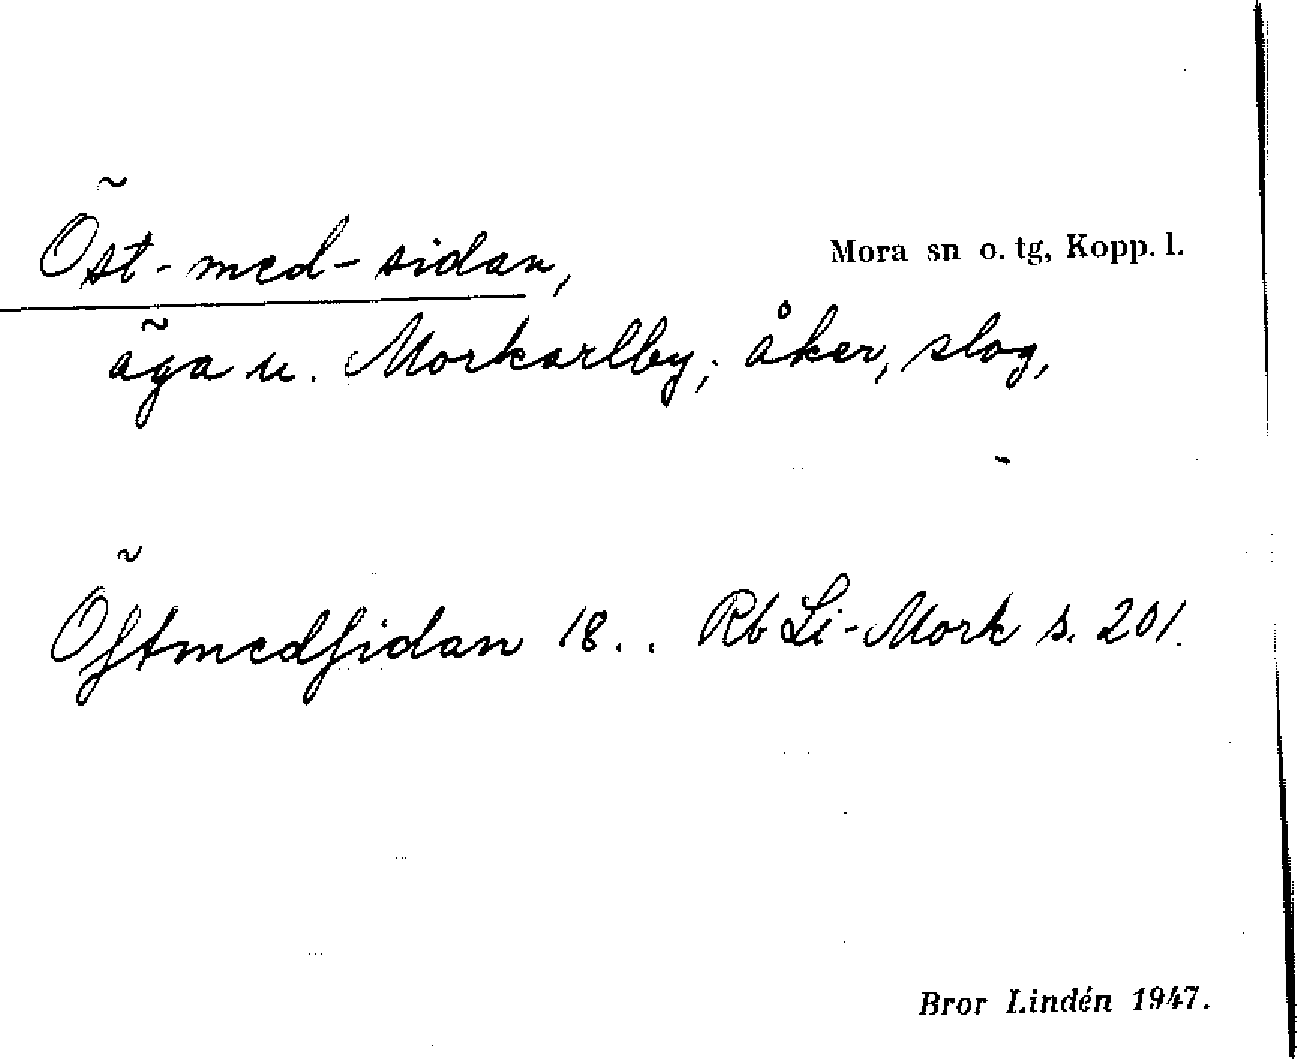 Öst-med-sidan,
Mora sn o. tg, Kopp. l.
äga u. Morkarlby; åker, slog,
Öſtmedſidan 18.. Rb Li-Mork s. 201.
Bror Lindén 1947.